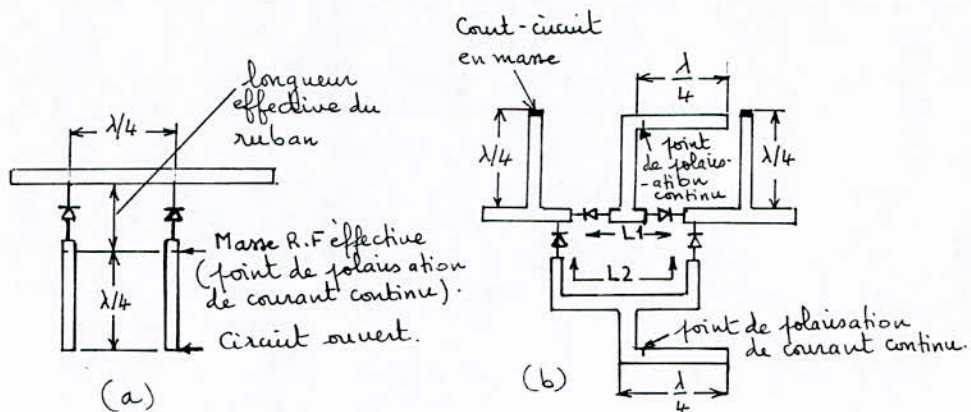 longueur
effective du
ruban
λ/4
λ/4
Masse R.F effective
(point de polarisation
de courant continu).
Circuit ouvert.
(a)
Court-circuit
en masse
λ/4
λ/4
λ/4
point
de polaris-
-ation
continue
L1
L2
point de polarisation
de courant continu.
λ/4
(b)